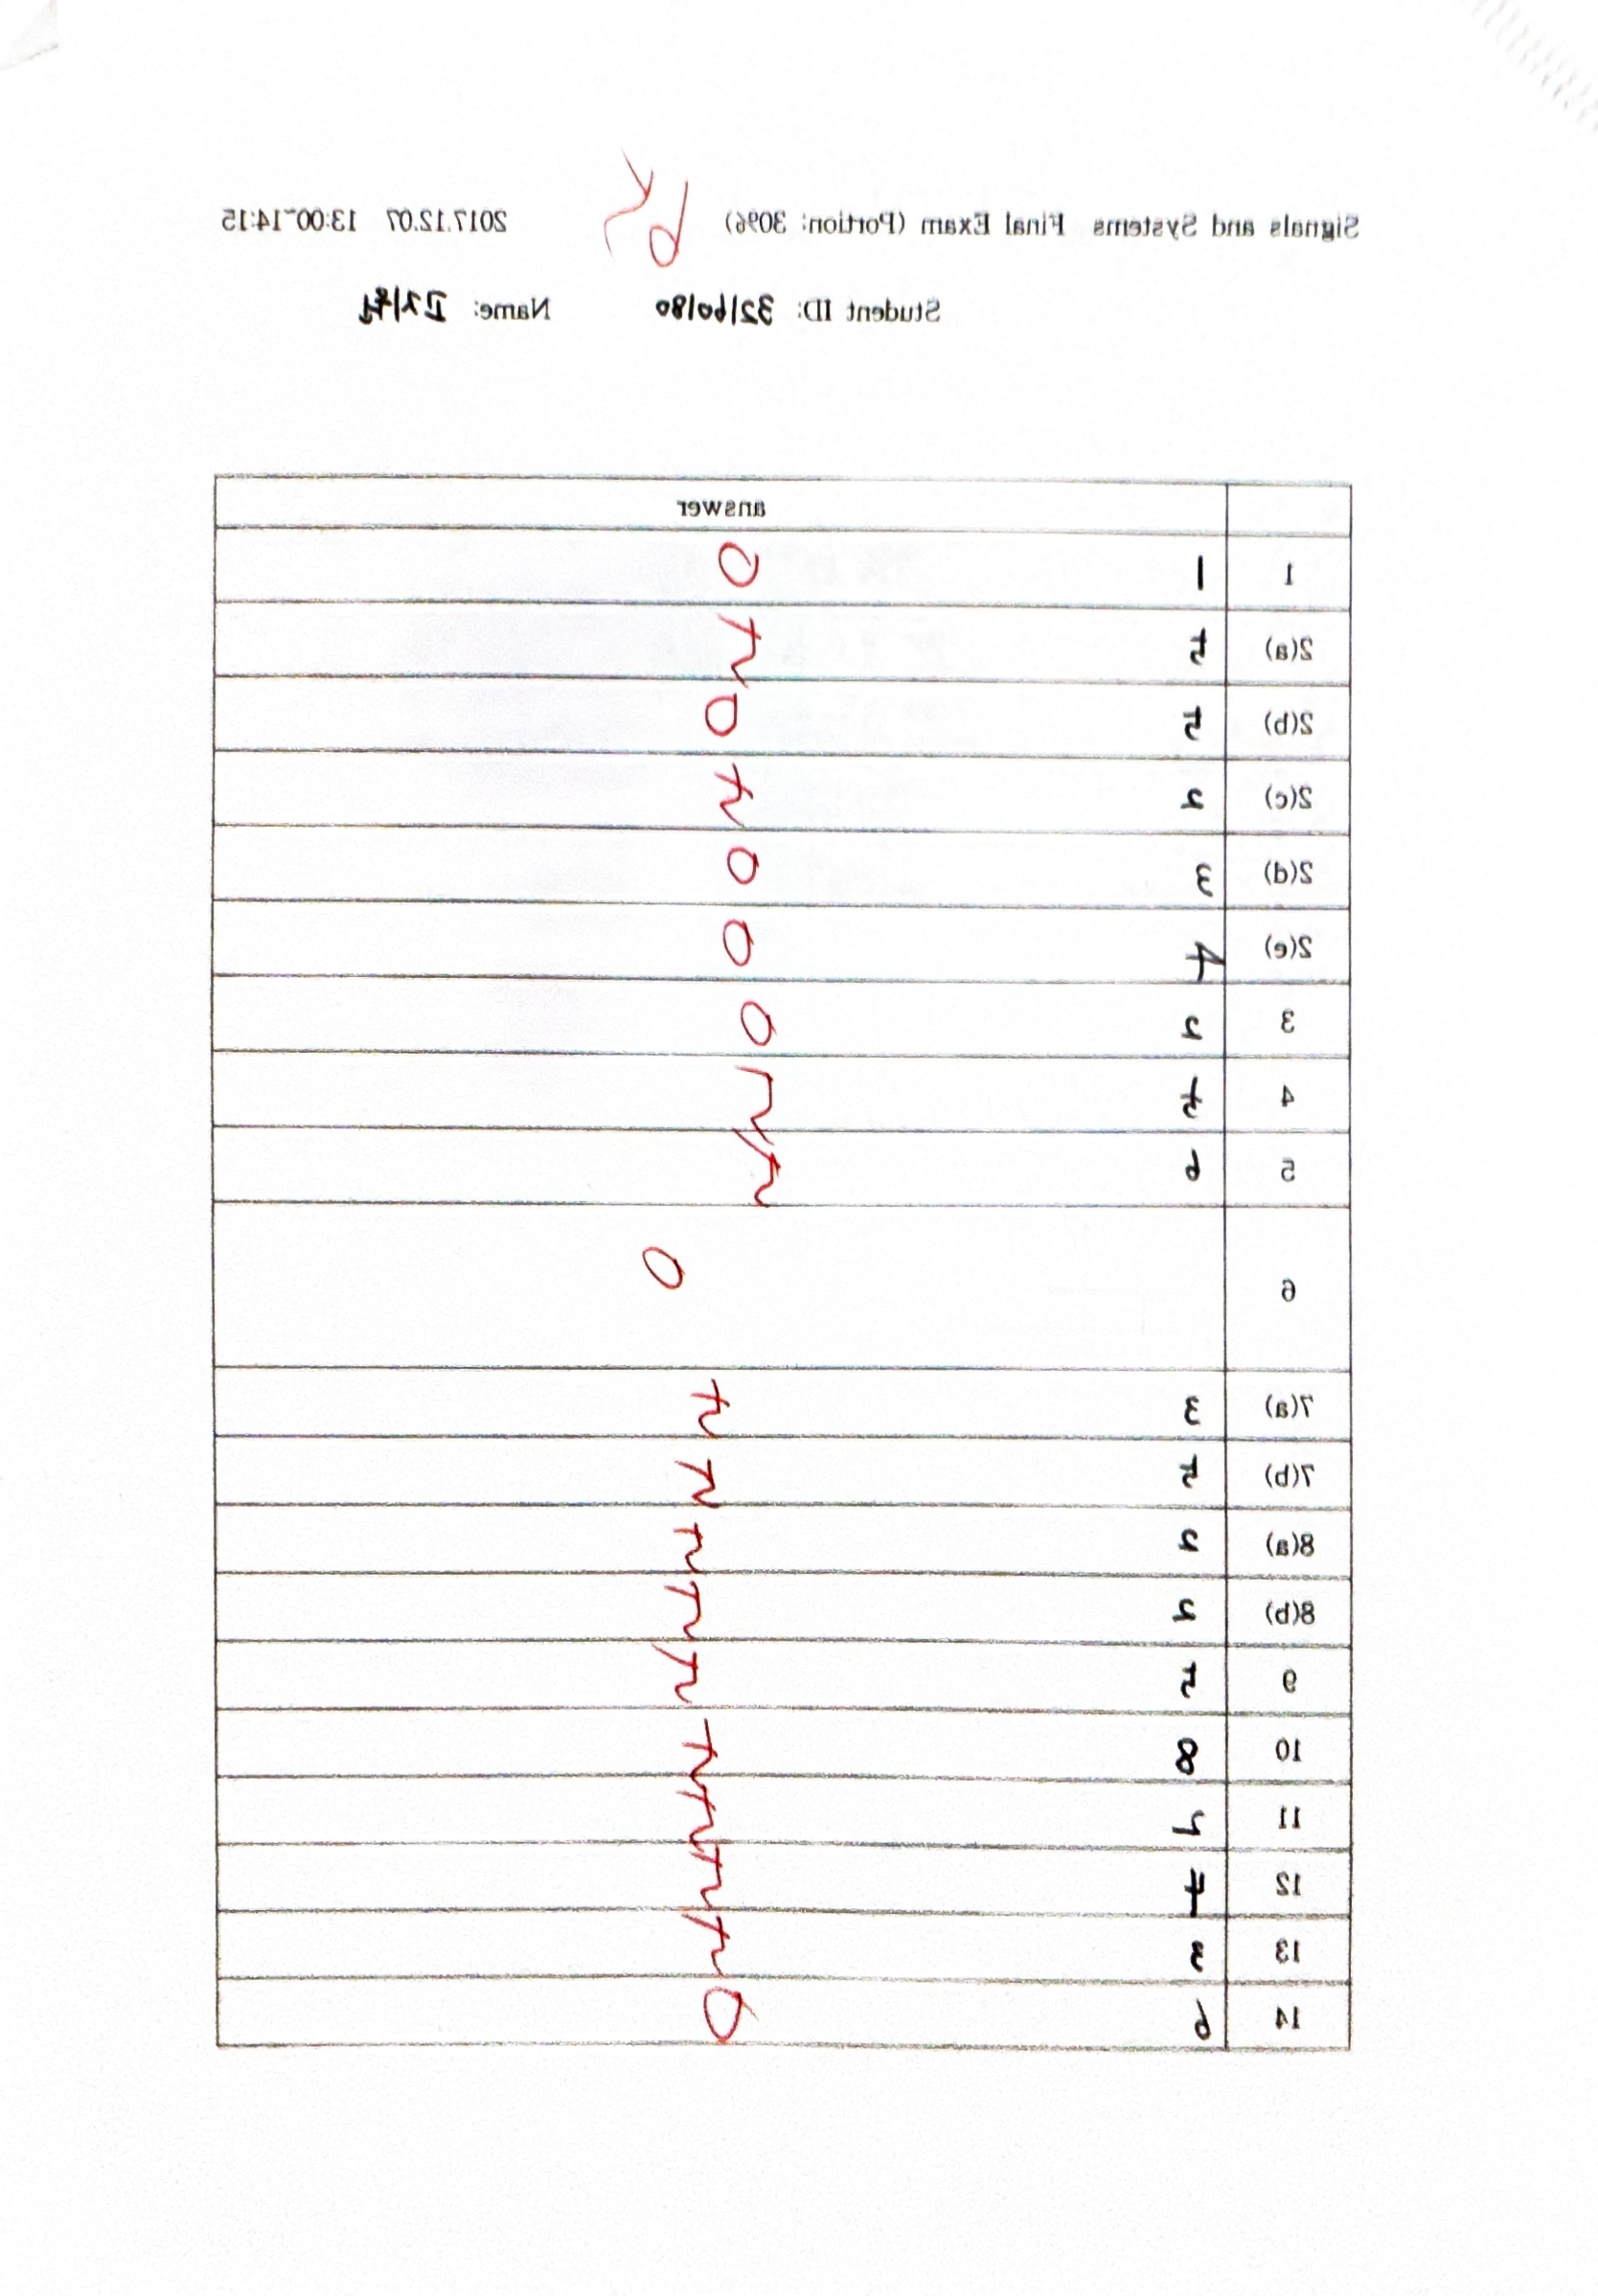 Signals and Systems Final Exam (Portion: 30%) 2017.12.07 13:00~14:15
Student ID: 32160180 Name: 고지원
answer
1 1 O
2(a) 5
2(b) 5 O
2(c) 2
2(d) 3 O
2(e) 4 O
3 2 O
4
5 6
6 O
7(a) 3
7(b) 5
8(a) 2
8(b) 2
9 5
10 8
11
12 7
13 3
14 6 O